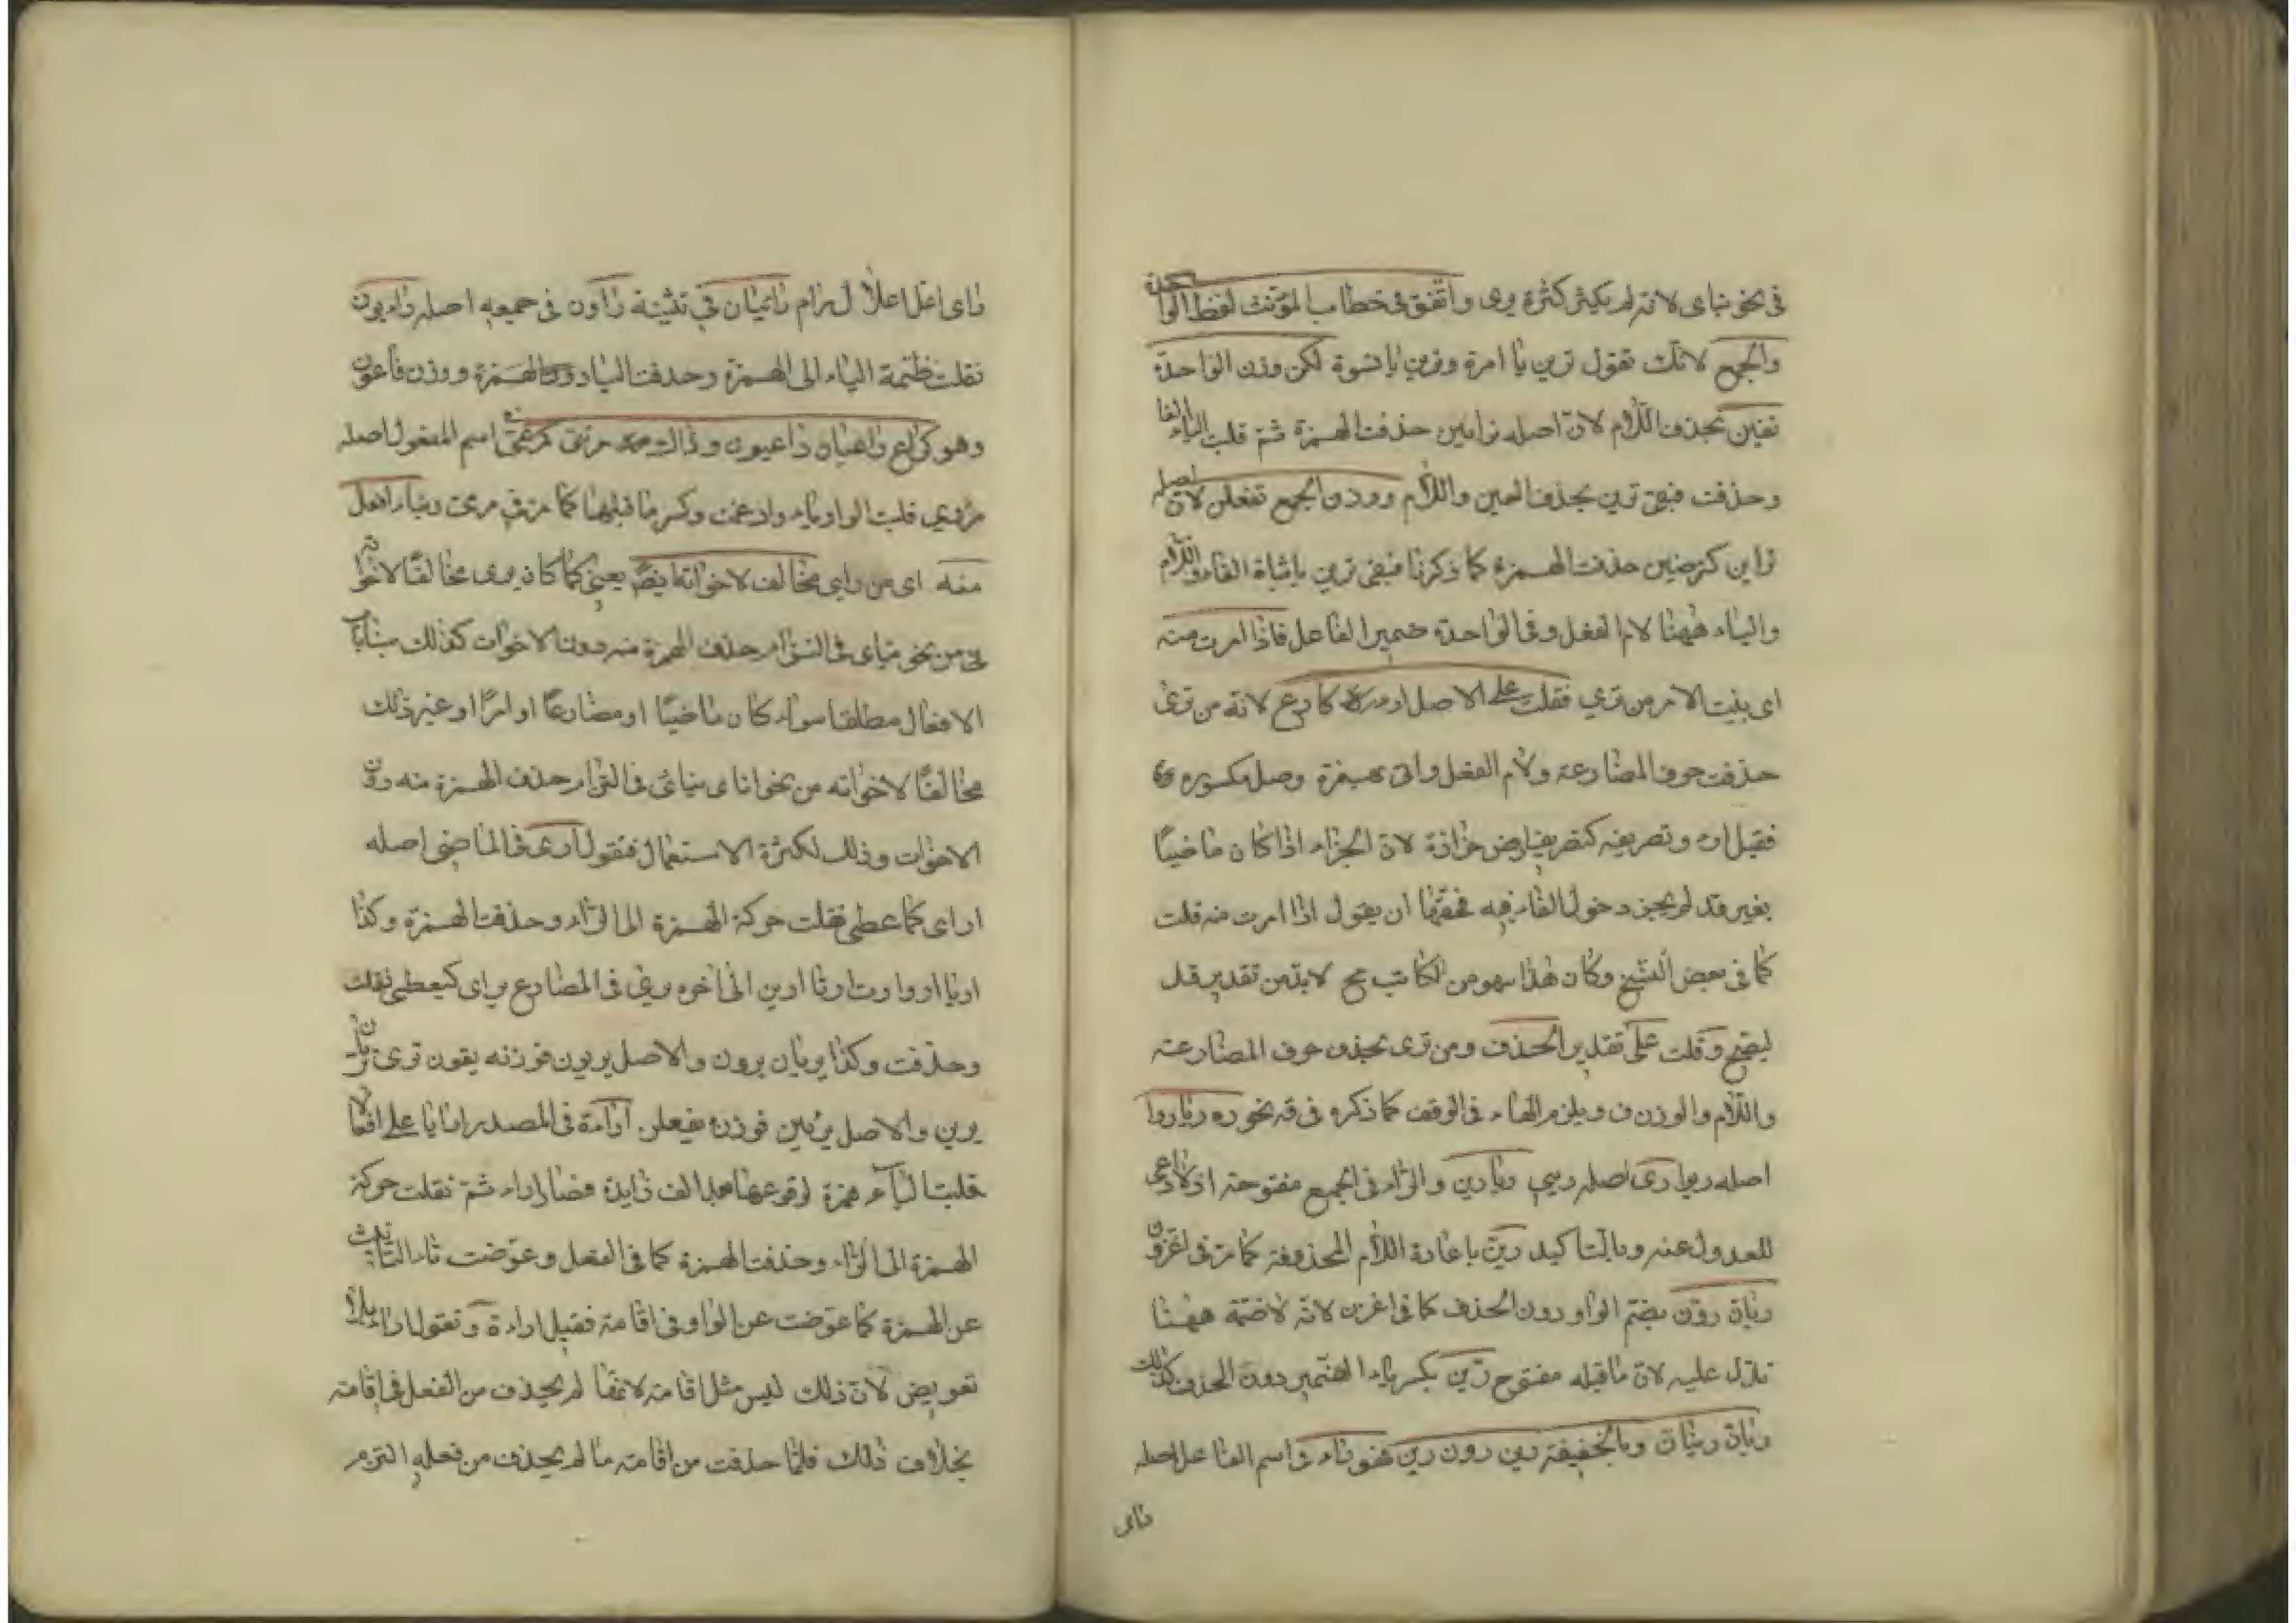 فى نحو يناى لانه لم يكثر كثرة يرى واتفق فى خطاب المؤنث لفظ الواحدة
والجمع لانك تقول ترين يا امرة وترين يا نسوة لكن وزن الواحدة
تفين بحذف اللام لان اصله ترايين حذفت الهمزة ثم قلبت الياء الفا
وحذفت فبقى ترين بحذف العين واللام ووزن الجمع تفلن لان اصله
تراين كترضين حذفت الهمزة كما ذكرنا فبقى ترين باثبات الفاء واللام
والياء ههنا لام الفعل وفى الواحدة ضمير الفاعل فاذا امرت منه
اى بنيت الامر من ترى فقلت على الاصل ارء كارع لانه من ترى
حذفت حرف المضارعة ولام الفعل واتى بهمزة وصل مكسورة
فقيل ارء وتصريفه كتصريف ارض لان الجزاء اذا كان ماضيا
بغير قد لم يجز دخول الفاء فيه فحقها ان يقول اذا امرت منه قلت
كما فى بعض النسخ وكان هذا سهو من الكاتب لابد من تقدير قد
ليصح وقلت على تقدير الحذف ومن ترى بحذف حرف المضارعة
واللام والوزن ف ويلزم الهاء فى الوقف كما ذكره فى قه نحو ره ريا روا
اصله ريوا رى اصله ريي ريا رين والراء فى الجمع مفتوحة اذ لا داعى
للعدول عنه وبالتاكيد رين باعادة اللام المحذوفة كما مر فى اغزون
ريان رون بضم الواو دون الحذف كما فى اغزن لانه لا ضمة ههنا
تدل عليه لان ما قبله مفتوح رين بكسر ياء الضمير دون الحذف كذلك
ريان رينان وبالخفيفة رين رون رين فهو راء فى اسم الفاعل اصله
راى
راى اعل اعلال رام رائيان فى تثنية راون فى جمعه اصله رائيون
نقلت ضمة الياء الى الهمزة وحذفت الياء ووزن فاعون
وهو كراع راعيان راعيون وذاك مرئى كمرعى اسم المفعول اصله
مرءوى قلبت الواو ياء وادغمت وكسر ما قبلها كما مر فى مرمى وبناء افعل
منه اى من راى مخالف لاخواته ايضا يعنى كما كان يرى مخالفا لاخواته
من نحو يناى فى التزام حذف الهمزة منه دون الاخوات كذلك بناء باب
الافعال مطلقا سواء كان ماضيا او مضارعا او امرا او غير ذلك
مخالفا لاخواته من نحو اناى يناى فى التزام حذف الهمزة منه دون
الاخوات وذلك لكثرة الاستعمال فتقول ارى فى الماضى اصله
اراى كاعطى فنقلت حركة الهمزة الى الراء وحذفت الهمزة وكذا
اريا اروا ارت ارتا ارين الى اخره يرى فى المضارع يراى كيعطى نقلت
وحذفت وكذا يريان يرون والاصل يريون فوزنه يفون ترى تريان
يرين والاصل يرئين فوزنه يفعلن اراءة فى المصدر ارايا على افعالا
قلبت الياء همزة لوقوعها بعد الف زايدة فصار اراء ثم نقلت حركة
الهمزة الى الراء وحذفت الهمزة كما فى الفعل وعوضت تاء التانيث
عن الهمزة كما عوضت عن الواو فى اقامة فقيل اراءة وتقول اراء بلا
تعويض لان ذلك ليس مثل اقامة لانها لم يحذف من الفعل فى اقامة
بخلاف ذلك فلما حذفت من اقامة ما لم يحذف من فعله التزم